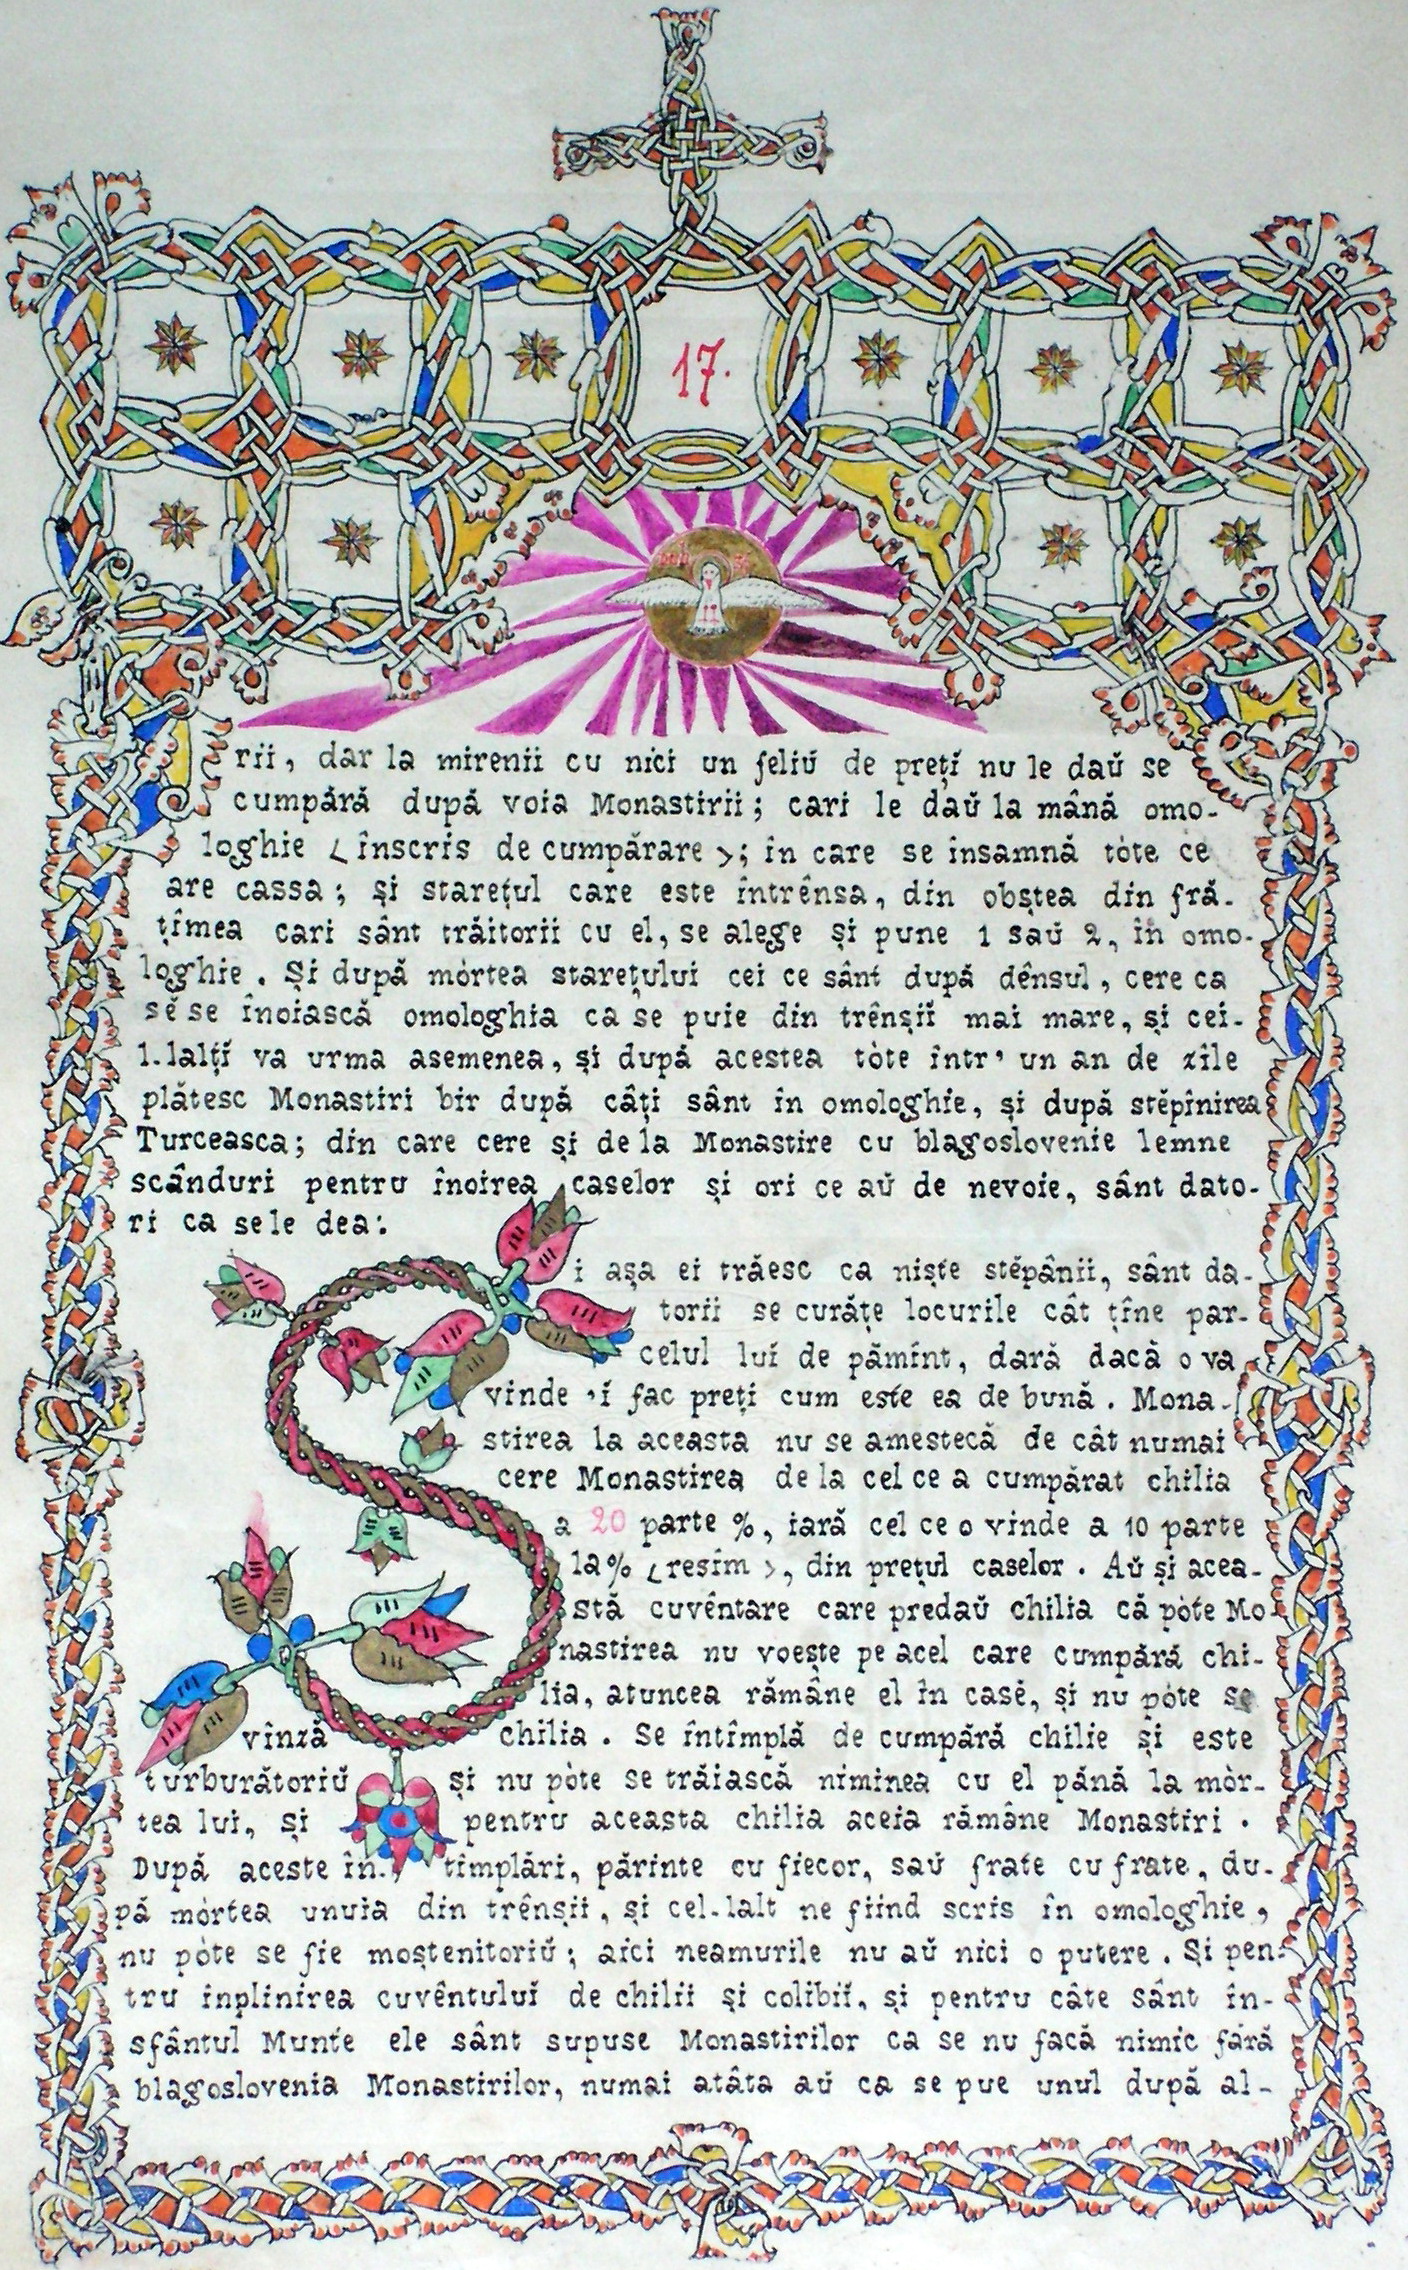 17.
rii, dar la mirenii cu nici un feliŭ de preţĭ nu le daŭ se
cumpără după voia Monastirii; cari le daŭ la mână omo-
loghie <înscris de cumpărare>; în care se însamnă tòte ce
are cassa; şi stareţul care este întrênsa, din obştea din fră-
ţîmea cari sânt trăitorii cu el, se alege şi pune 1 saŭ 2, în omo-
loghie. Şi după mòrtea stareţului cei ce sânt după dênsul, cere ca
sĕ se înoiască omologhia ca se puie din trênşiĭ mai mare, şi cei-
l-lalţĭ va urma asemenea, şi după acestea tòte într' un an de zîle
plătesc Monastiri bir după câţi sânt în omologhie, şi după stĕpînirea
Turceasca; din care cere şi de la Monastire cu blagoslovenie lemne
scânduri pentru înoirea caselor şi ori ce aŭ de nevoie, sânt dato-
ri ca se le dea:.
Şi aşa ei trăesc ca nişte stĕpânii, sânt da-
torii se curăţe locurile cât ţîne par-
celul luĭ de pămînt, dară dacă o va
vinde 'ĭ fac preţi cum este ea de bună. Mona-
stirea la aceasta nu se amestecă de cât numai
cere Monastirea de la cel ce a cumpărat chilia
a 20 parte %, iară cel ce o vinde a 10 parte
la % <resîm>, din preţul caselor. Aŭ şi acea-
stă cuvêntare care predaŭ chilia că pòte Mo-
nastirea nu voeşte pe acel care cumpără chi-
lia, atuncea rămâne el în casĕ, şi nu pòte se
vînză chilia. Se întîmplă de cumpără chilie şi este
turburătoriŭ şi nu pòte se trăiască niminea cu el pănă la mòr-
tea lui, şi pentru aceasta chilia aceia rămâne Monastiri.
După aceste în- tîmplări, părinte cu fiecor, saŭ frate cu frate, du-
pă mòrtea unuia din trênşii, şi cel-lalt ne fiind scris în omologhie,
nu pòte se fie moştenitoriŭ; aici neamurile nu aŭ nici o putere. Şi pen-
tru înplinirea cuvêntuluĭ de chilii şi colibiĭ, şi pentru câte sânt în-
sfântul Munte ele sânt supuse Monastirilor ca se nu facă nimic fără
blagoslovenia Monastirilor, numai atâta aŭ ca se pue unul după al-